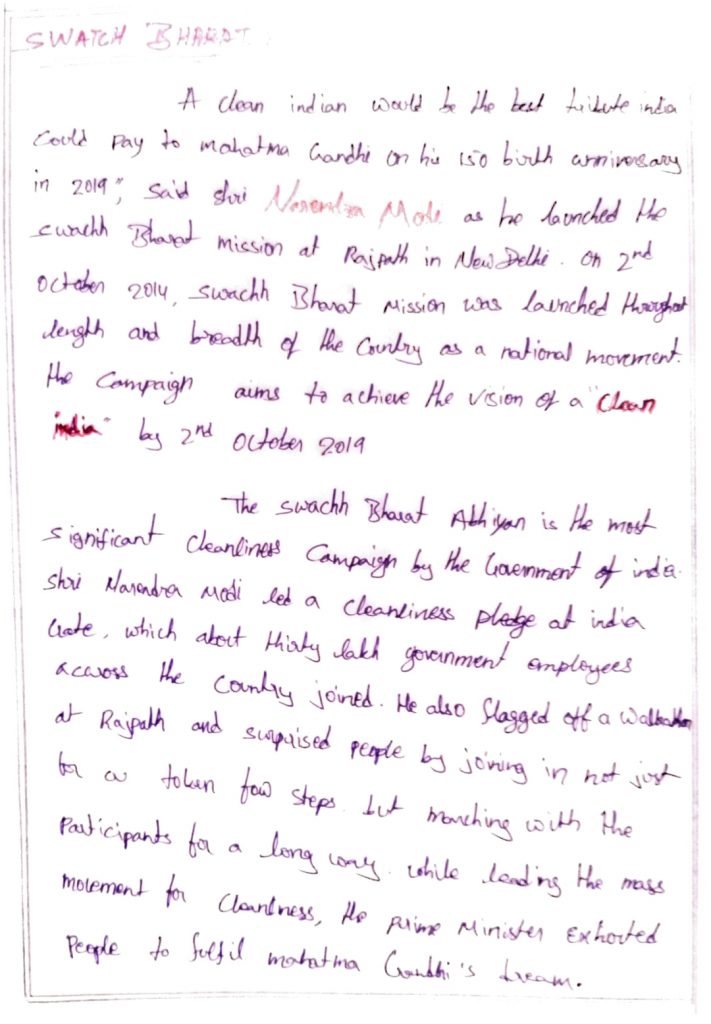 SWATCH BHARAT
A clean indian would be the best tribute india
Could pay to mahatma Gandhi on his 150 birth anniversary
in 2019", said shri Narendra Modi as he launched the
swachh Bharat mission at Rajpath in New Delhi. On 2nd
October 2014, swachh Bharat Mission was launched throughout
length and breadth of the Country as a national movement.
the Campaign aims to achieve the vision of a "Clean
india" by 2nd October 2019
The swachh Bharat Abhiyan is the most
significant cleanliness Campaign by the Government of india.
Shri Narendra Modi led a cleanliness pledge at india
Gate, which about thirty lakh government employees
accross the country joined. He also flagged off a Walkathon
at Rajpath and surprised people by joining in not just
for a token few steps but marching with the
Participants for a long way. while leading the mass
movement for Cleanlness, the prime Minister Exhorted
People to fulfil mahatma Gandhi's dream.